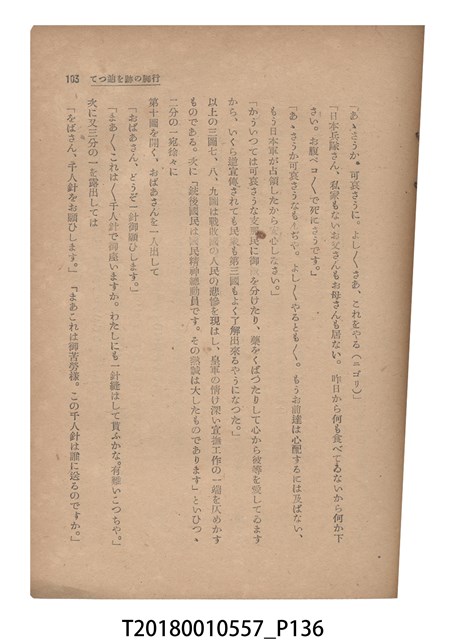 「あゝさうか。可哀さうに。よし〳〵さあ、これをやる（ニゴリ）」
「日本兵隊さん、私家もないお父さんもお母さんも居ない。昨日から何も食べてゐないから何か下
さい。お腹ペコ〳〵で死にさうです。」
「あゝさうか可哀さうなもんぢや。よし〳〵やるとも〳〵。もうお前達は心配するには及ばない、
もう日本軍が占領したから安心しなさい。」
「かういつては可哀さうな支那民に御飯を分けたり、薬をくばつたりして心から彼等を愛してゐます
から、いくら逆宣傳されても民衆も第三國もよく了解出來るやうになつた。」
以上の三圖七、八、九圖は戰敗國の人民の悲慘を現はし、皇軍の情け深い宣撫工作の一端を仄めかす
ものである。次に「銃後國民は國民精神總動員です。その熱誠は大したものであります」といひつゝ
二分の一宛徐々に
第十圖を開く。おばあさんを一人出して
「おばあさん、どうぞ一針御願ひします。」
「まあ〳〵これは〳〵千人針で御座いますか。わたしにも一針縫はして貰ふかな。有難いこつちや。」
次に又三分の一を露出しては
「をばさん、千人針をお願ひします。」「まあこれは御苦勞樣。この千人針は誰に送るのですか。」
103
行脚の跡を踏つて
T20180010557_P136